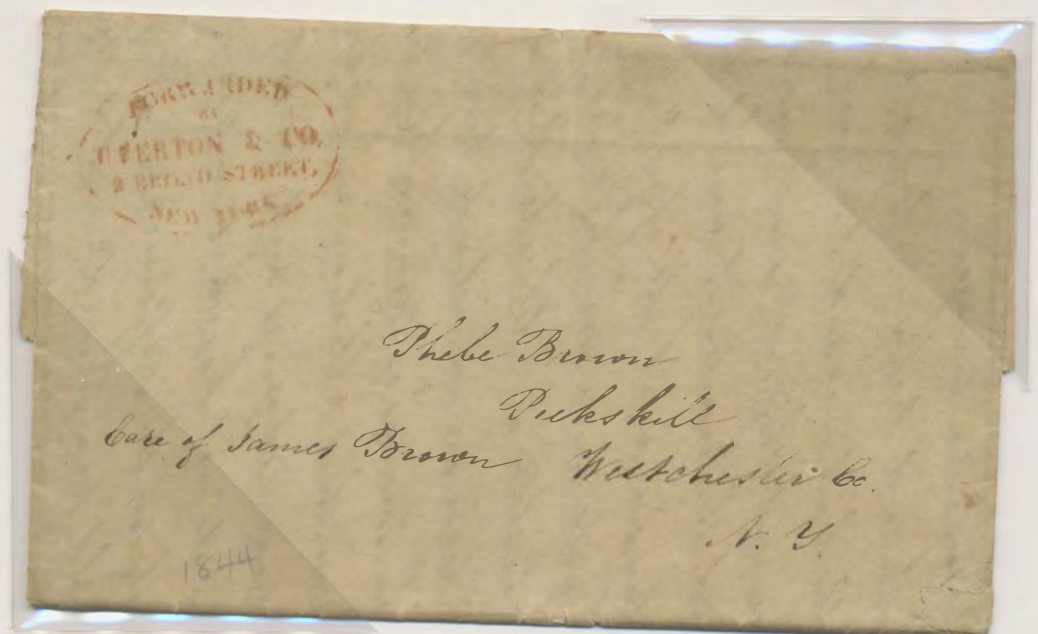 FORWARDED
BY
OVERTON & CO.
3 BROAD STREET,
NEW YORK
Phebe Brown
Peekskill
Care of James Brown Westchester Co.
N. Y.
1844